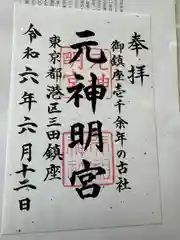 奉拝
御鎮座壱千余年の古社
元神明宮
東京都港区三田鎮座
令和六年六月十二日